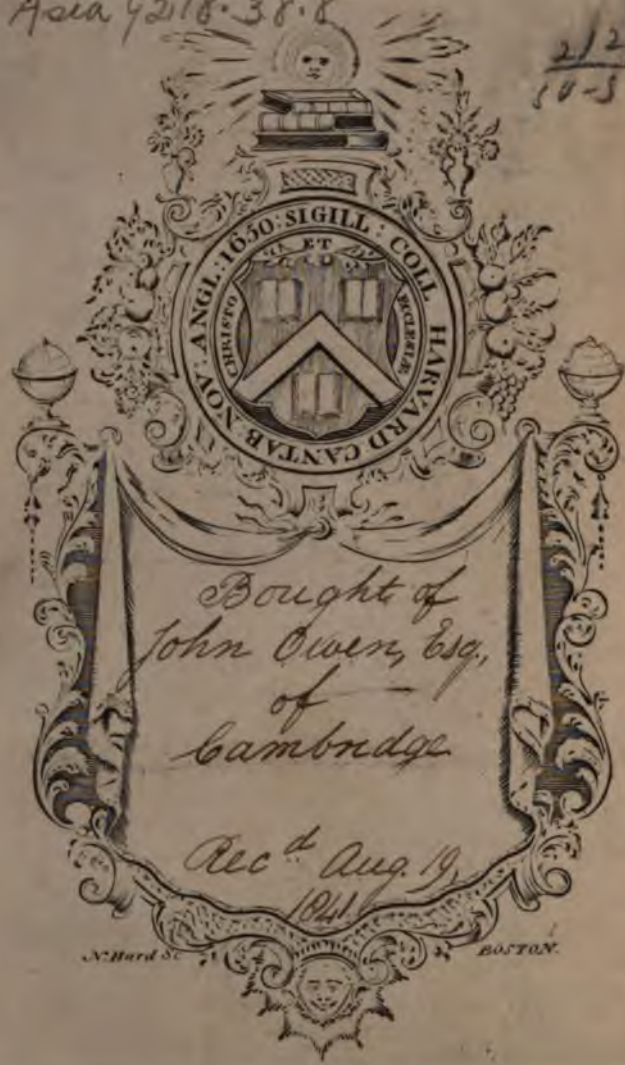 Asia 9218.38.8
212
50-5
SIGILL: COLL HARVARD CANTAB NOV: ANGL: 1650:
CHRISTO ET ECCLESIÆ
Bought of
John Owen, Esq,
of
Cambridge
Rec.d Aug. 19,
1841.
N. Hurd Sc.
BOSTON.